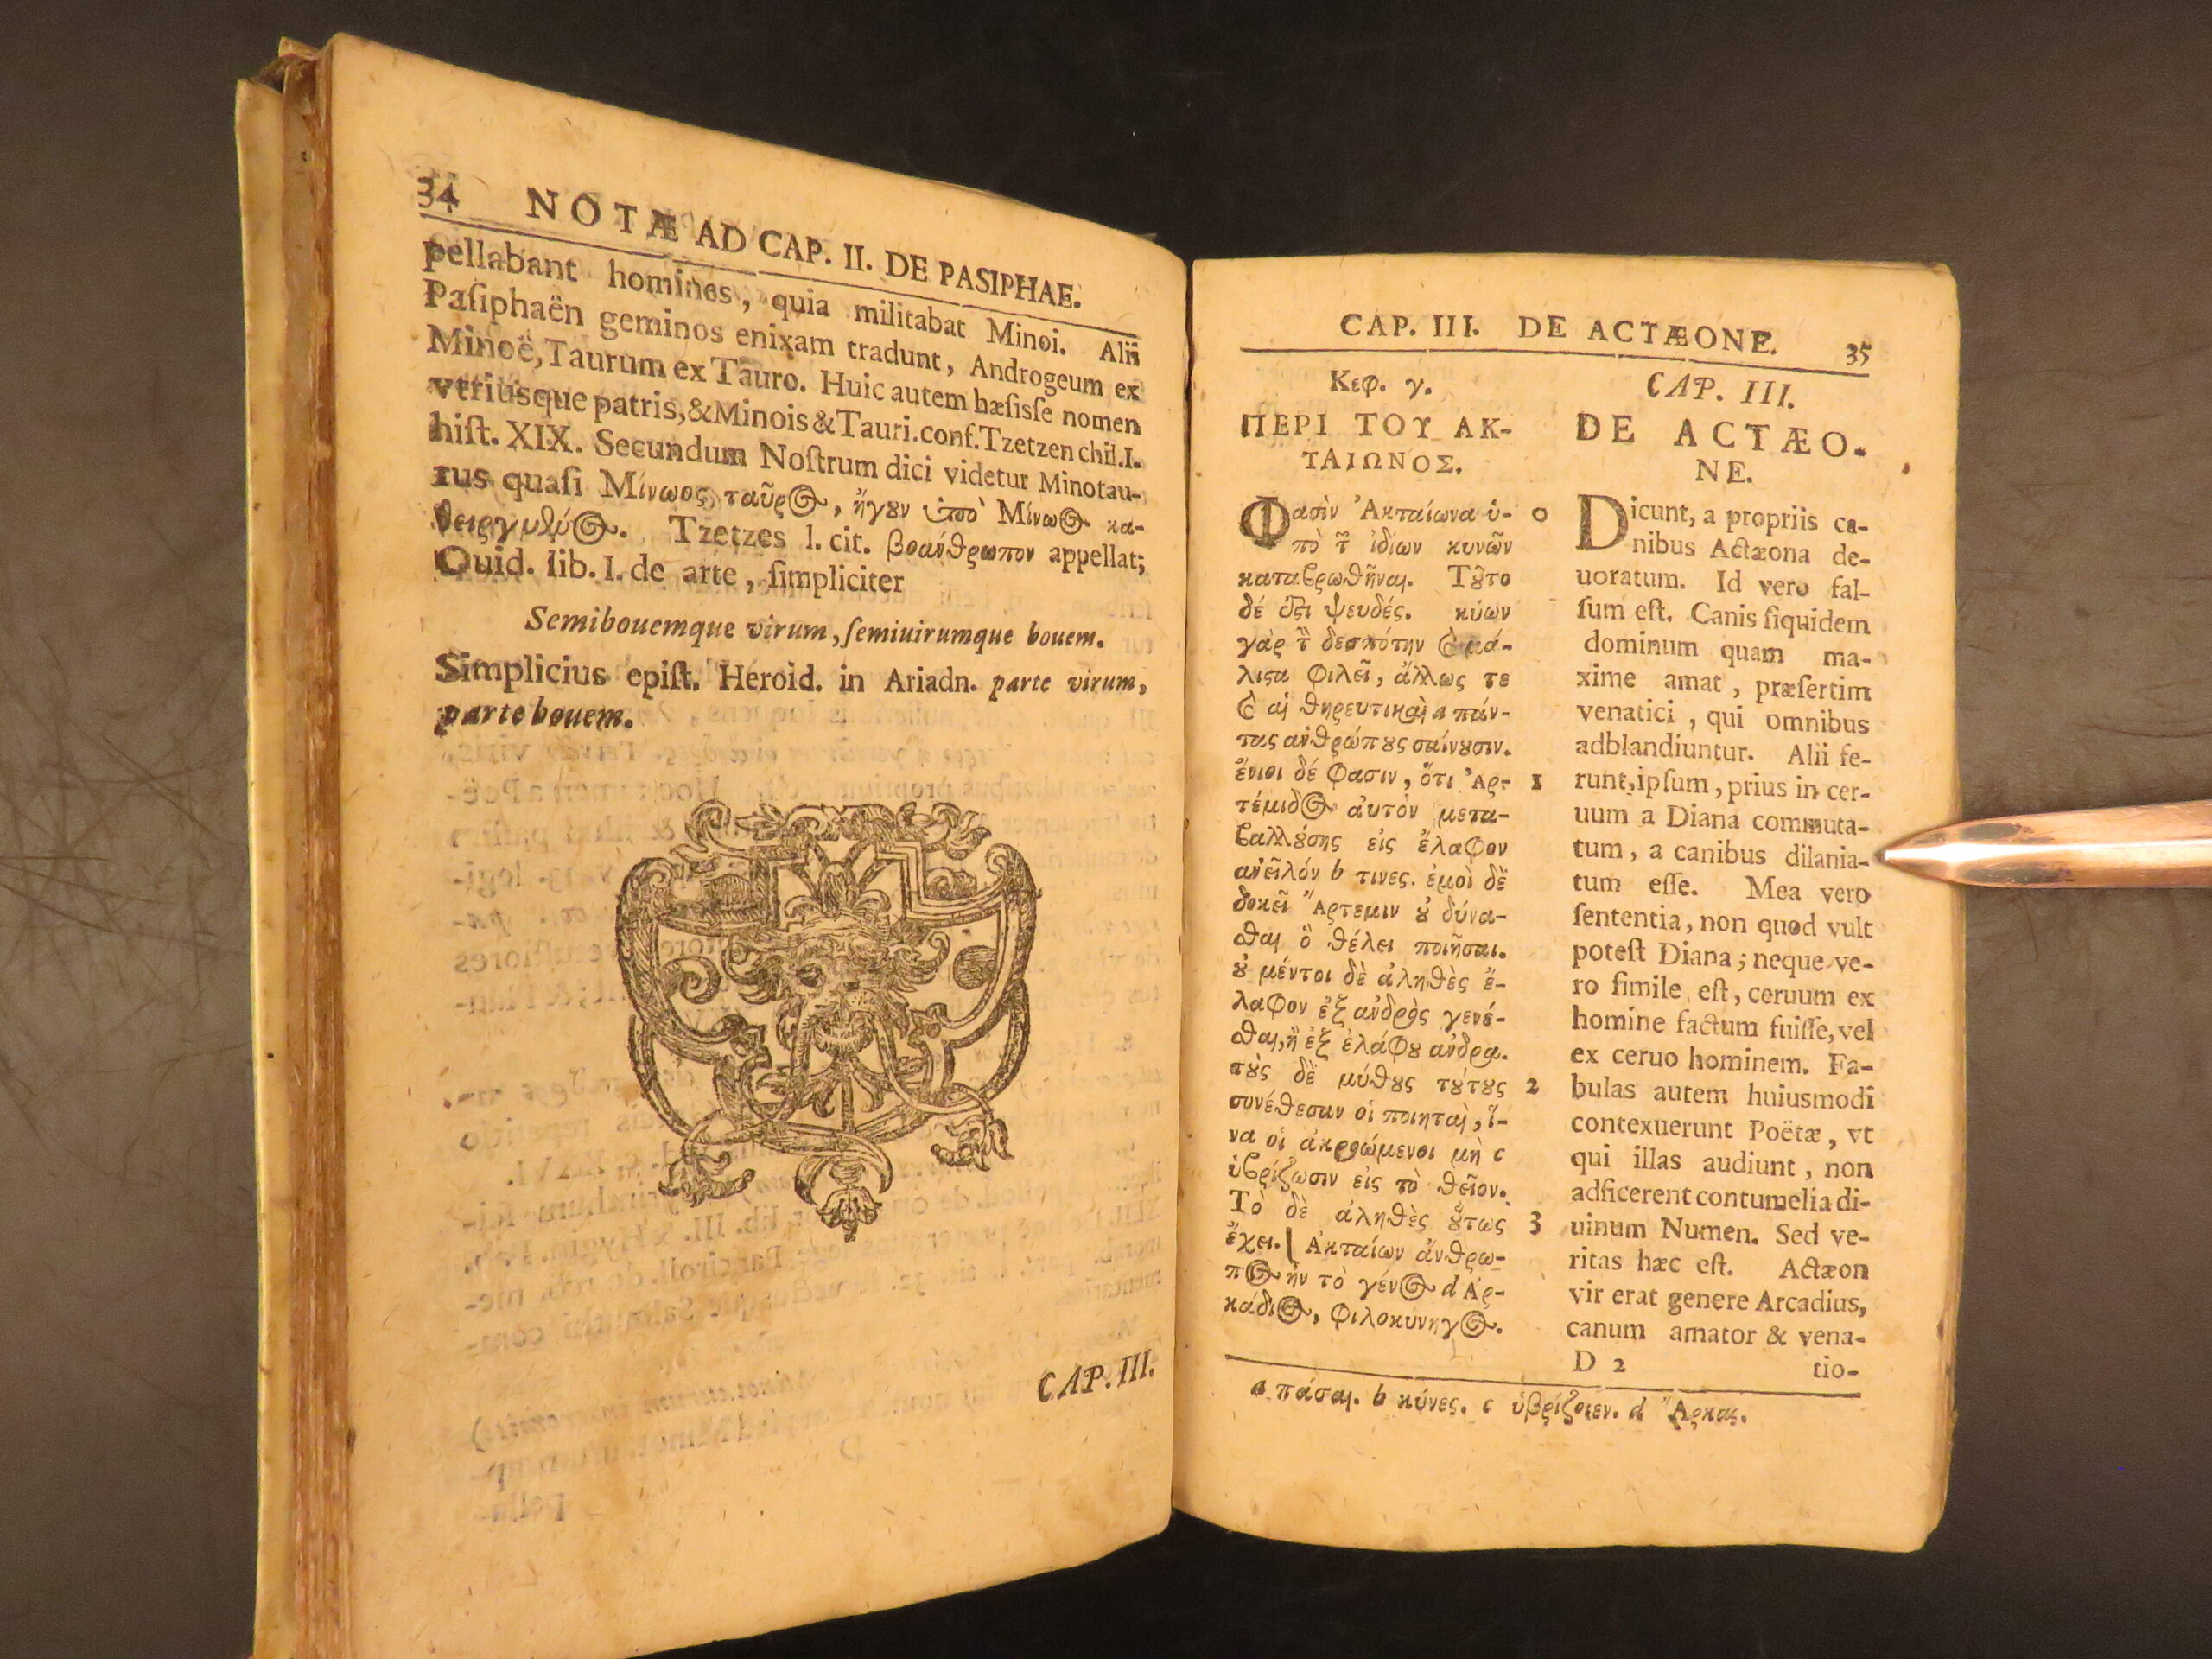 34 NOTÆ AD CAP. II. DE PASIPHAE.
pellabant homines, quia militabat Minoi. Alii
Paſiphaën geminos enixam tradunt, Androgeum ex
Minoë, Taurum ex Tauro. Huic autem hæſiſſe nomen
vtriusque patris, & Minois & Tauri. conf. Tzetzen chil. I.
hiſt. XIX. Secundum Noſtrum dici videtur Minotau-
rus quaſi Μίνωος ταῦρος, ἤγουν ὑπὸ Μίνωος κα-
θειργμένος. Tzetzes l. cit. βοάνθρωπον appellat;
Ouid. lib. I. de arte, ſimpliciter
Semibouemque virum, ſemiuirumque bouem.
Simplicius epiſt. Heroid. in Ariadn. parte virum,
parte bouem.
CAP. III.
CAP. III. DE ACTÆONE. 35
Κεφ. γ.
ΠΕΡΙ ΤΟΥ ΑΚ-
ΤΑΙΩΝΟΣ.
Φασὶν Ἀκταίωνα ὑ- 0
πὸ τῶν ἰδίων κυνῶν
καταβρωθῆναι. Τοῦτο
δέ ἐστι ψευδές. κύων
γὰρ τὸν δεσπότην καὶ μά-
λιϛα φιλεῖ, ἄλλως τε
καὶ αἱ θηρευτικαὶ a πάν-
τας ἀνθρώπους σαίνουσιν.
ἔνιοι δέ φασιν, ὅτι Ἀρ- 1
τέμιδος αὐτὸν μετα-
βαλλούσης εἰς ἔλαφον
ἀνεῖλόν b τινες. ἐμοὶ δὲ
δοκεῖ Ἄρτεμιν οὐ δύνα-
σθαι ὃ θέλει ποιῆσαι.
οὐ μέντοι δὲ ἀληθὲς ἔ-
λαφον ἐξ ἀνδρὸς γενέ-
σθαι, ἢ ἐξ ἐλάφου ἄνδρα.
τοὺς δὲ μύθους τούτους 2
συνέθεσαν οἱ ποιηταὶ, ἵ-
να οἱ ἀκροώμενοι μὴ c
ὑβρίζωσιν εἰς τὸ θεῖον.
Τὸ δὲ ἀληθὲς οὕτως 3
ἔχει. Ἀκταίων ἄνθρω-
πος ἦν τὸ γένος d Ἀρ-
κάδιος, φιλοκύνηγος.
CAP. III.
DE ACTÆO-
NE.
Dicunt, a propriis ca-
nibus Actæona de-
uoratum. Id vero fal-
ſum eſt. Canis ſiquidem
dominum quam ma-
xime amat, præſertim
venatici, qui omnibus
adblandiuntur. Alii fe-
runt, ipſum, prius in cer-
uum a Diana commuta-
tum, a canibus dilania-
tum eſſe. Mea vero
ſententia, non quod vult
poteſt Diana; neque ve-
ro ſimile eſt, ceruum ex
homine factum fuiſſe, vel
ex ceruo hominem. Fa-
bulas autem huiusmodi
contexuerunt Poëtæ, vt
qui illas audiunt, non
adficerent contumelia di-
uinum Numen. Sed ve-
ritas hæc eſt. Actæon
vir erat genere Arcadius,
canum amator & vena-
D 2 tio-
a πάσαι. b κύνες. c ὑβρίζοιεν. d Ἄρκας.